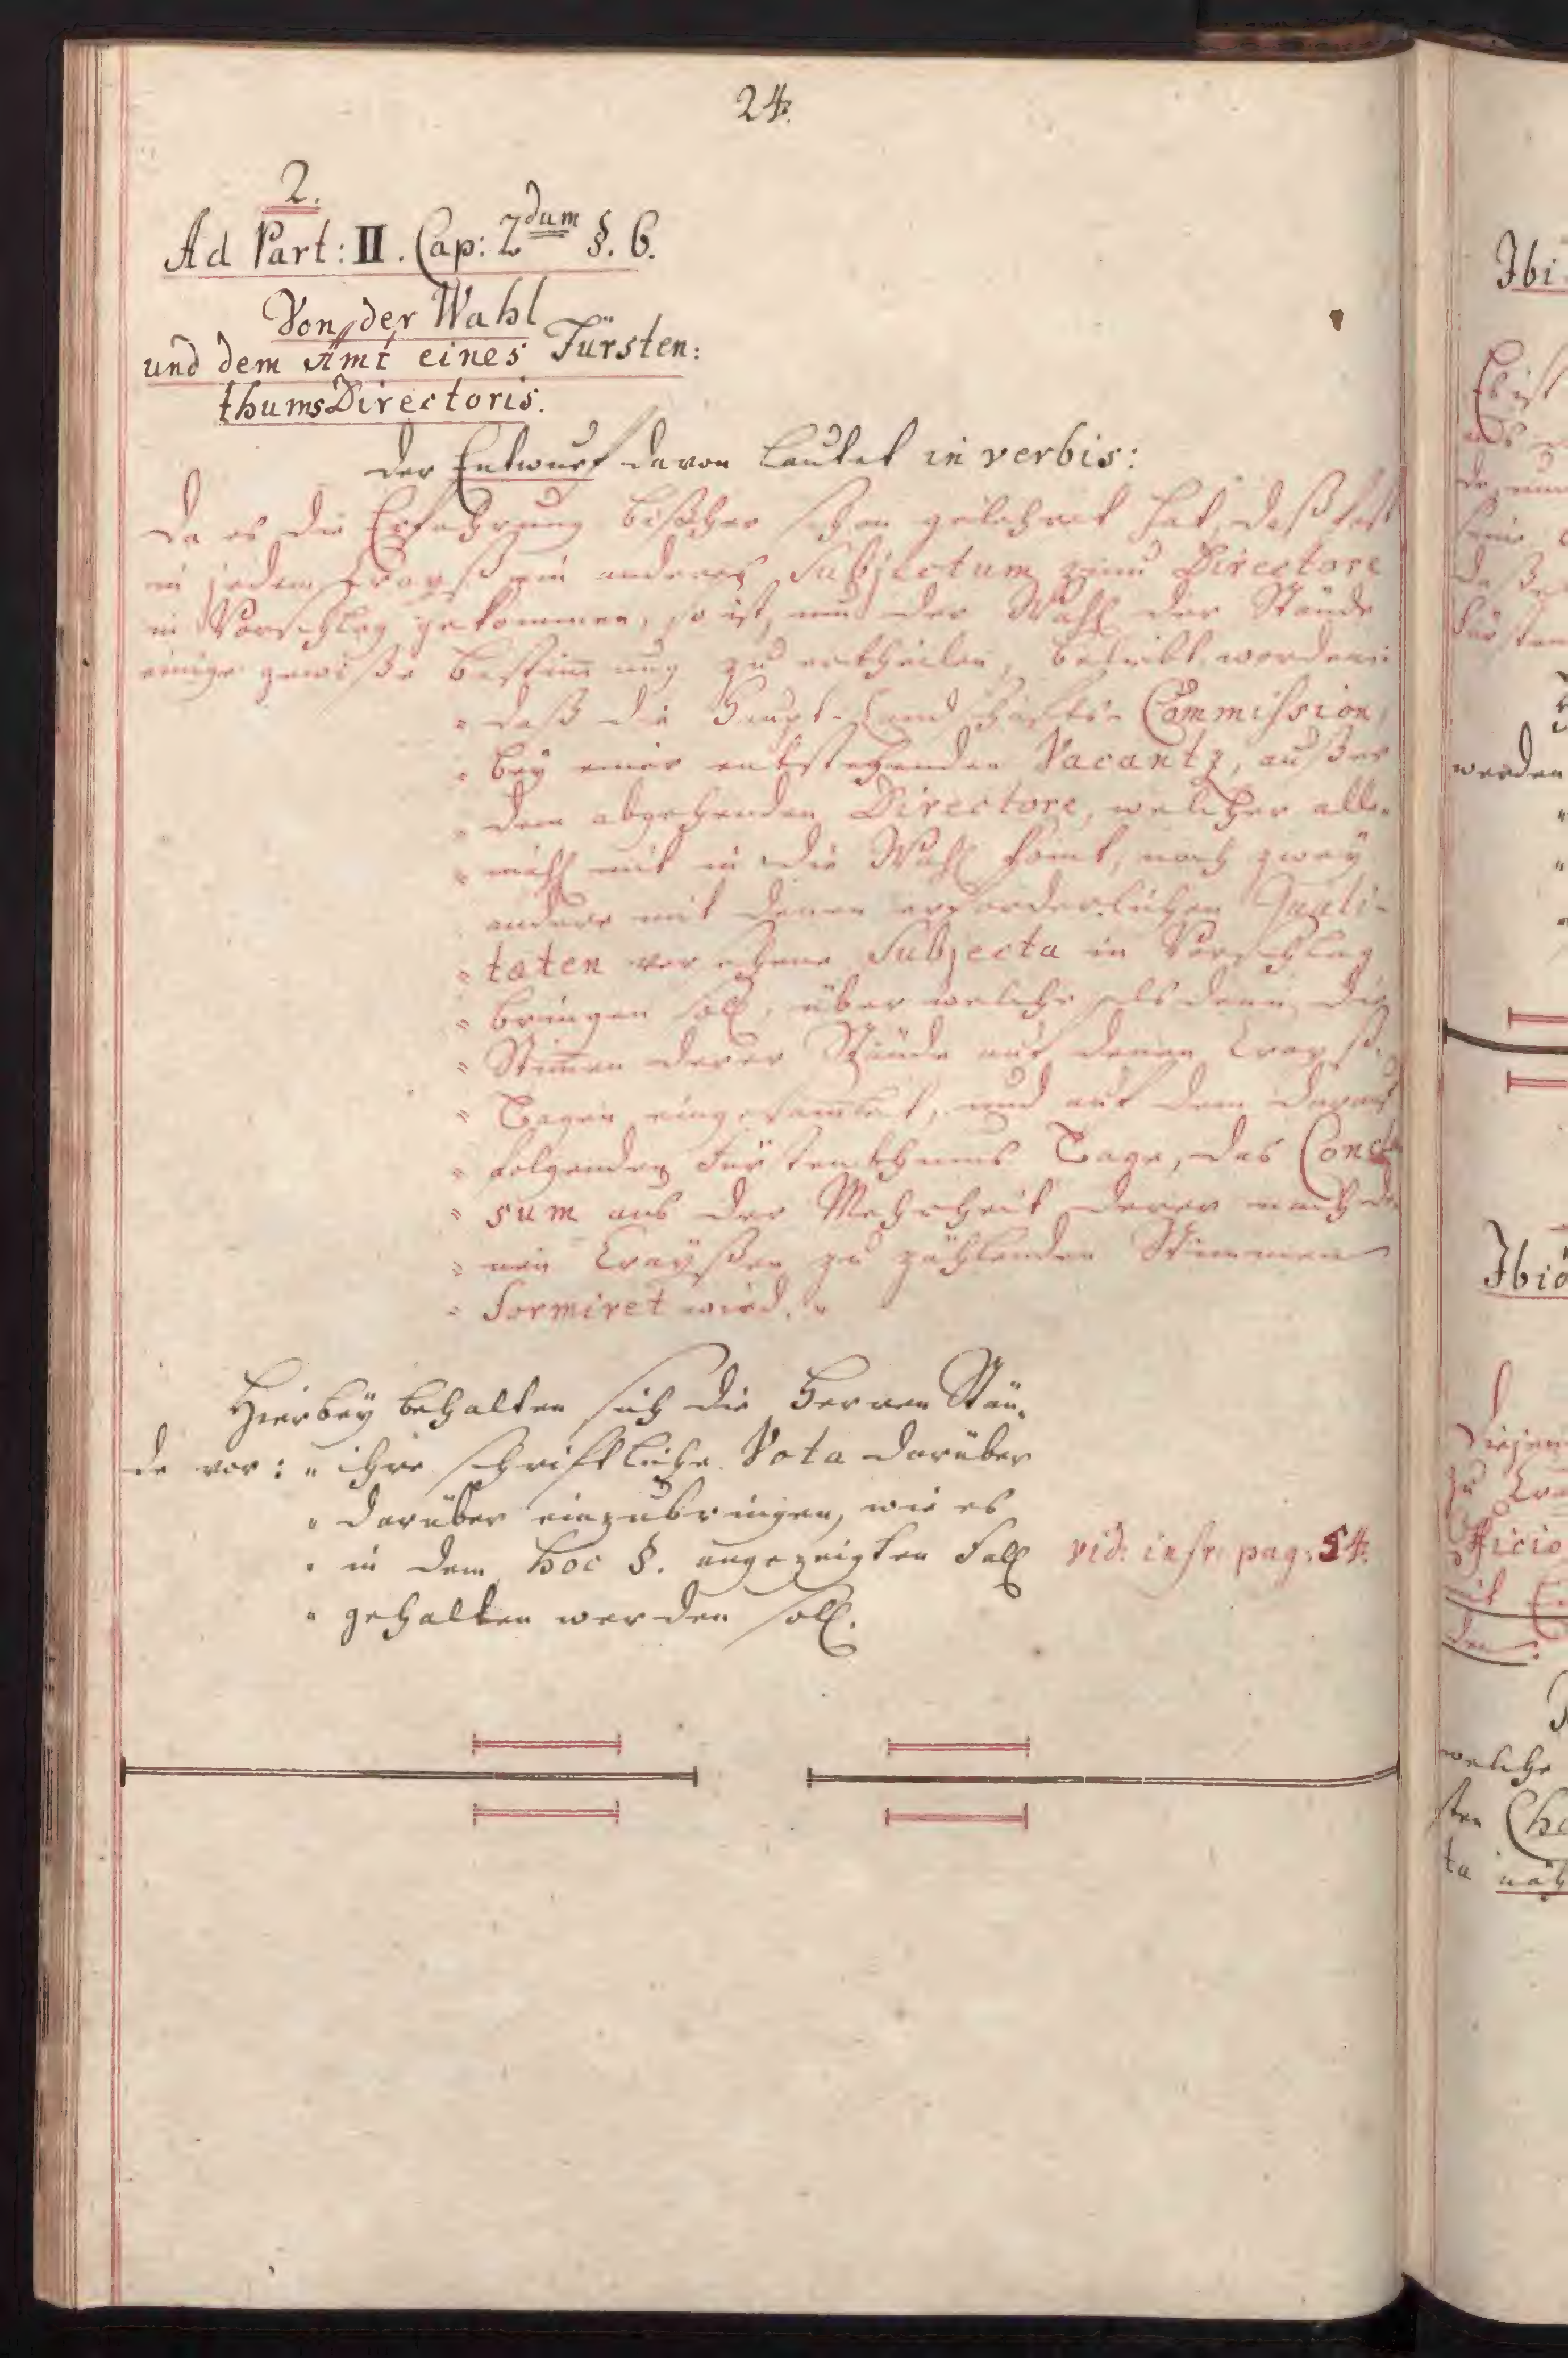 24.
2.
Ad Part: II. Cap: 2dum §. 6.
Von der Wahl
und dem Amt eines Fürsten:
thums Directoris.
Der Entwurf davon lautet in verbis:
Da es die Erfahrung bißher schon gelehret hat, daß fast
in jedem Crayß ein anderes Subjectum zum Directore
in Vorschlag gekommen, so ist, um der Wahl der Stände
einige gewiße Bestimmung zu ertheilen, beliebt worden:
" daß die Haupt-Landschafts-Commission,
" bey einer entstehenden Vacantz, außer
" dem abgehenden Directore, welcher alle-
" mahl mit in die Wahl komt, noch zwey
" andere mit denen erforderlichen Quali-
" taten versehene Subjecta in Vorschlag
" bringen soll, über welche alsdenn die
" Stimen derer Stände auf denen Crayß-
" Tagen eingesamlet, und auf dem darauf
" folgenden Fürstenthums Tage, das Conclu
" sum aus der Mehrheit derer nach de-
" nen Crayßen zu zählenden Stimmen
" formiret wird. "
Hierbey behalten sich die Herren Stän-
de vor: " ihre schriftliche Vota darüber
" darüber einzubringen, wie es
" in dem hoc §. angezeigten Fall
vid. infr. pag: 54.
" gehalten werden soll.